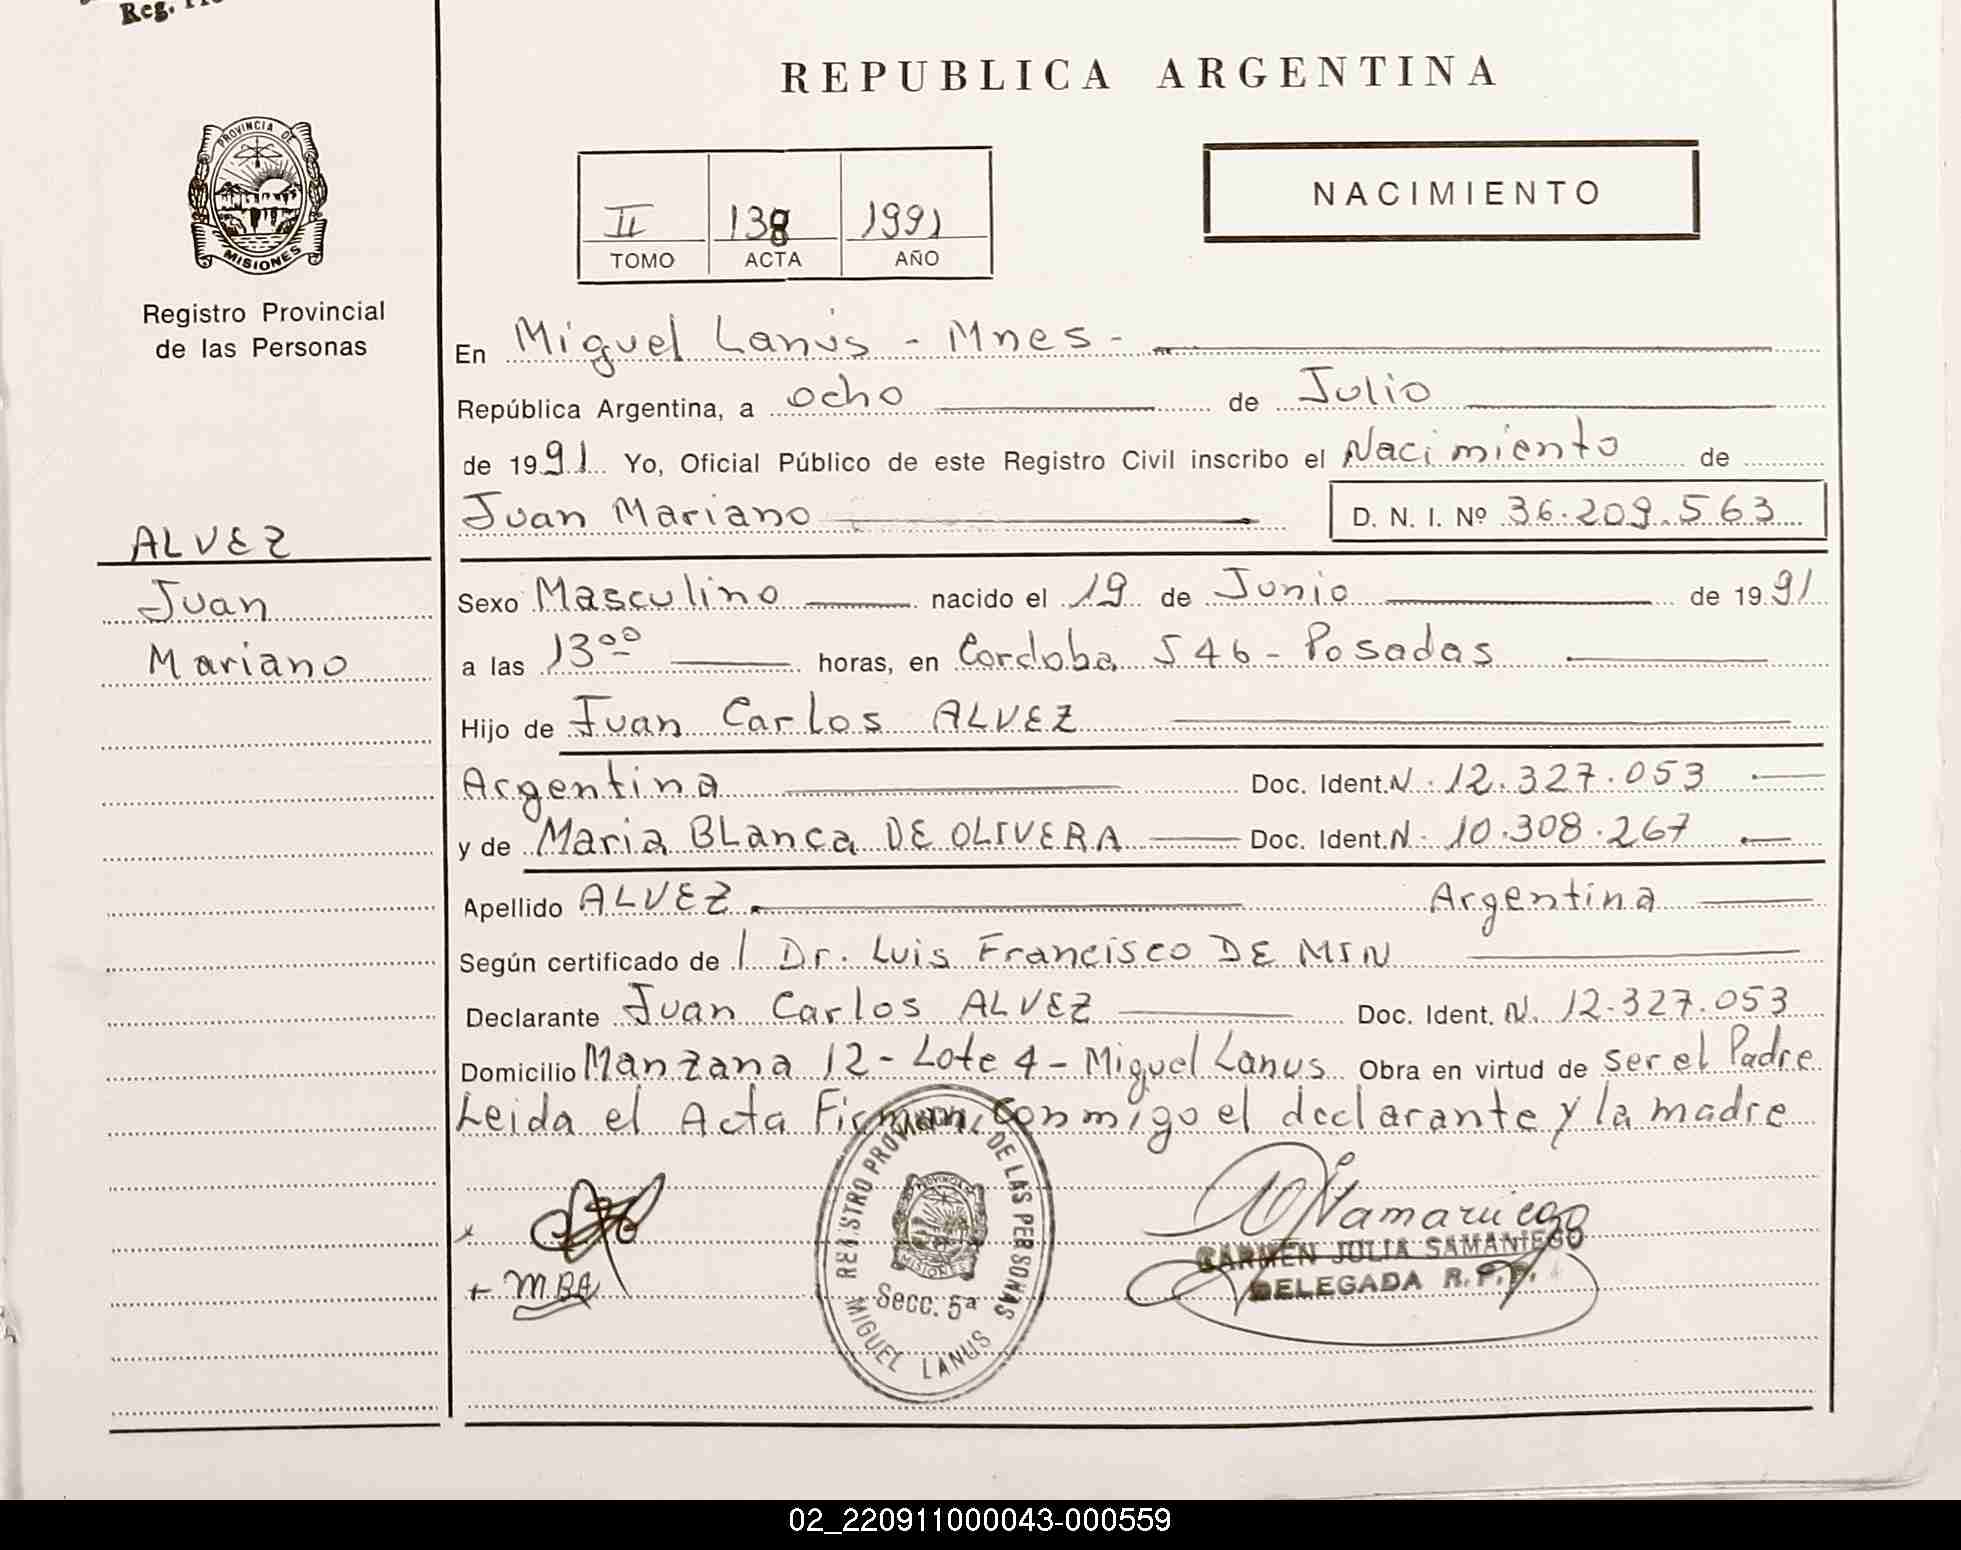 Reg.
REPUBLICA ARGENTINA
PROVINCIA DE
MISIONES
Registro Provincial
de las Personas
II 138 1991
TOMO ACTA AÑO
NACIMIENTO
En Miguel Lanús - Mnes -
República Argentina, a ocho de Julio
de 1991 Yo, Oficial Público de este Registro Civil inscribo el Nacimiento de
Juan Mariano D. N. I. Nº 36.209.563
ALVEZ
Juan
Mariano
Sexo Masculino nacido el 19 de Junio de 1991
a las 13ºº horas, en Cordoba 546 - Posadas
Hijo de Juan Carlos ALVEZ
Argentina Doc. Ident. N. 12.327.053
y de Maria BLanca DE OLIVERA Doc. Ident. N. 10.308.267
Apellido ALVEZ Argentina
Según certificado de l Dr. Luis Francisco DE MIN
Declarante Juan Carlos ALVEZ Doc. Ident. N. 12.327.053
Domicilio Manzana 12 - Lote 4 - Miguel Lanus Obra en virtud de ser el Padre
Leida el Acta Firman, conmigo el declarante y la madre
REGISTRO PROVINCIAL DE LAS PERSONAS
MISIONES
Secc. 5ª
MIGUEL LANUS
CARMEN JULIA SAMANIEGO
DELEGADA R.P.P.
02_220911000043-000559